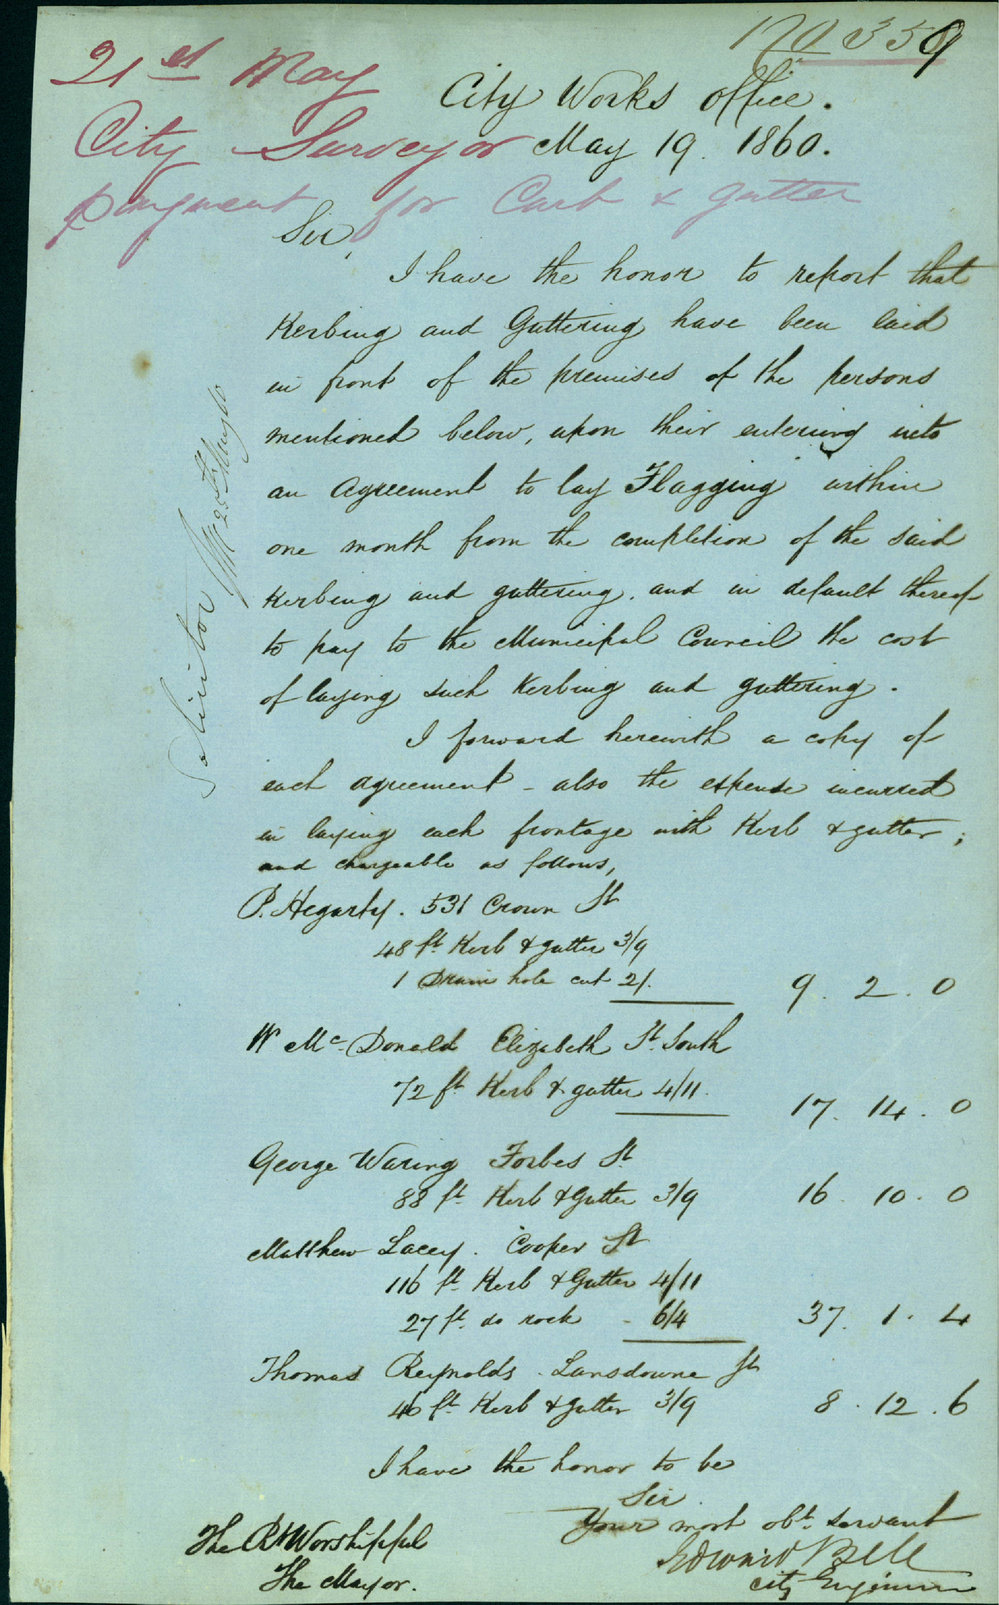 No 359
21st May
City Works Office.
City Surveyor May 19. 1860.
payment for Curb & gutter
Sir,
I have the honor to report that
Kerbing and Guttering have been laid
in front of the premises of the persons
mentioned below, upon their entering into
an Agreement to lay Flagging within
one month from the completion of the said
Kerbing and guttering, and in default thereof
to pay to the Municipal Council the cost
of laying such Kerbing and guttering.
I forward herewith a copy of
each agreement - also the expense incurred
in laying each frontage with Kerb & gutter;
and chargeable as follows,
P. Hegarty. 531 Crown St
48 ft Kerb & gutter 3/9
1 Drain hole cut 2/. 9. 2. 0
W McDonald Elizabeth St. South
72 ft Kerb & gutter 4/11. 17. 14. 0
George Waring Forbes St
88 ft Kerb & Gutter 3/9 16. 10. 0
Matthew Lacey. Cooper St
116 ft Kerb & Gutter 4/11
27 ft. do rock - 6/4 37. 1. 4
Thomas Reynolds. Lansdowne St
46 ft Kerb & gutter 3/9 8. 12. 6
I have the honor to be
Sir
Your most obt. servant
Edward Bell
City Engineer
The Rt Worshipful
The Mayor.
Solicitor